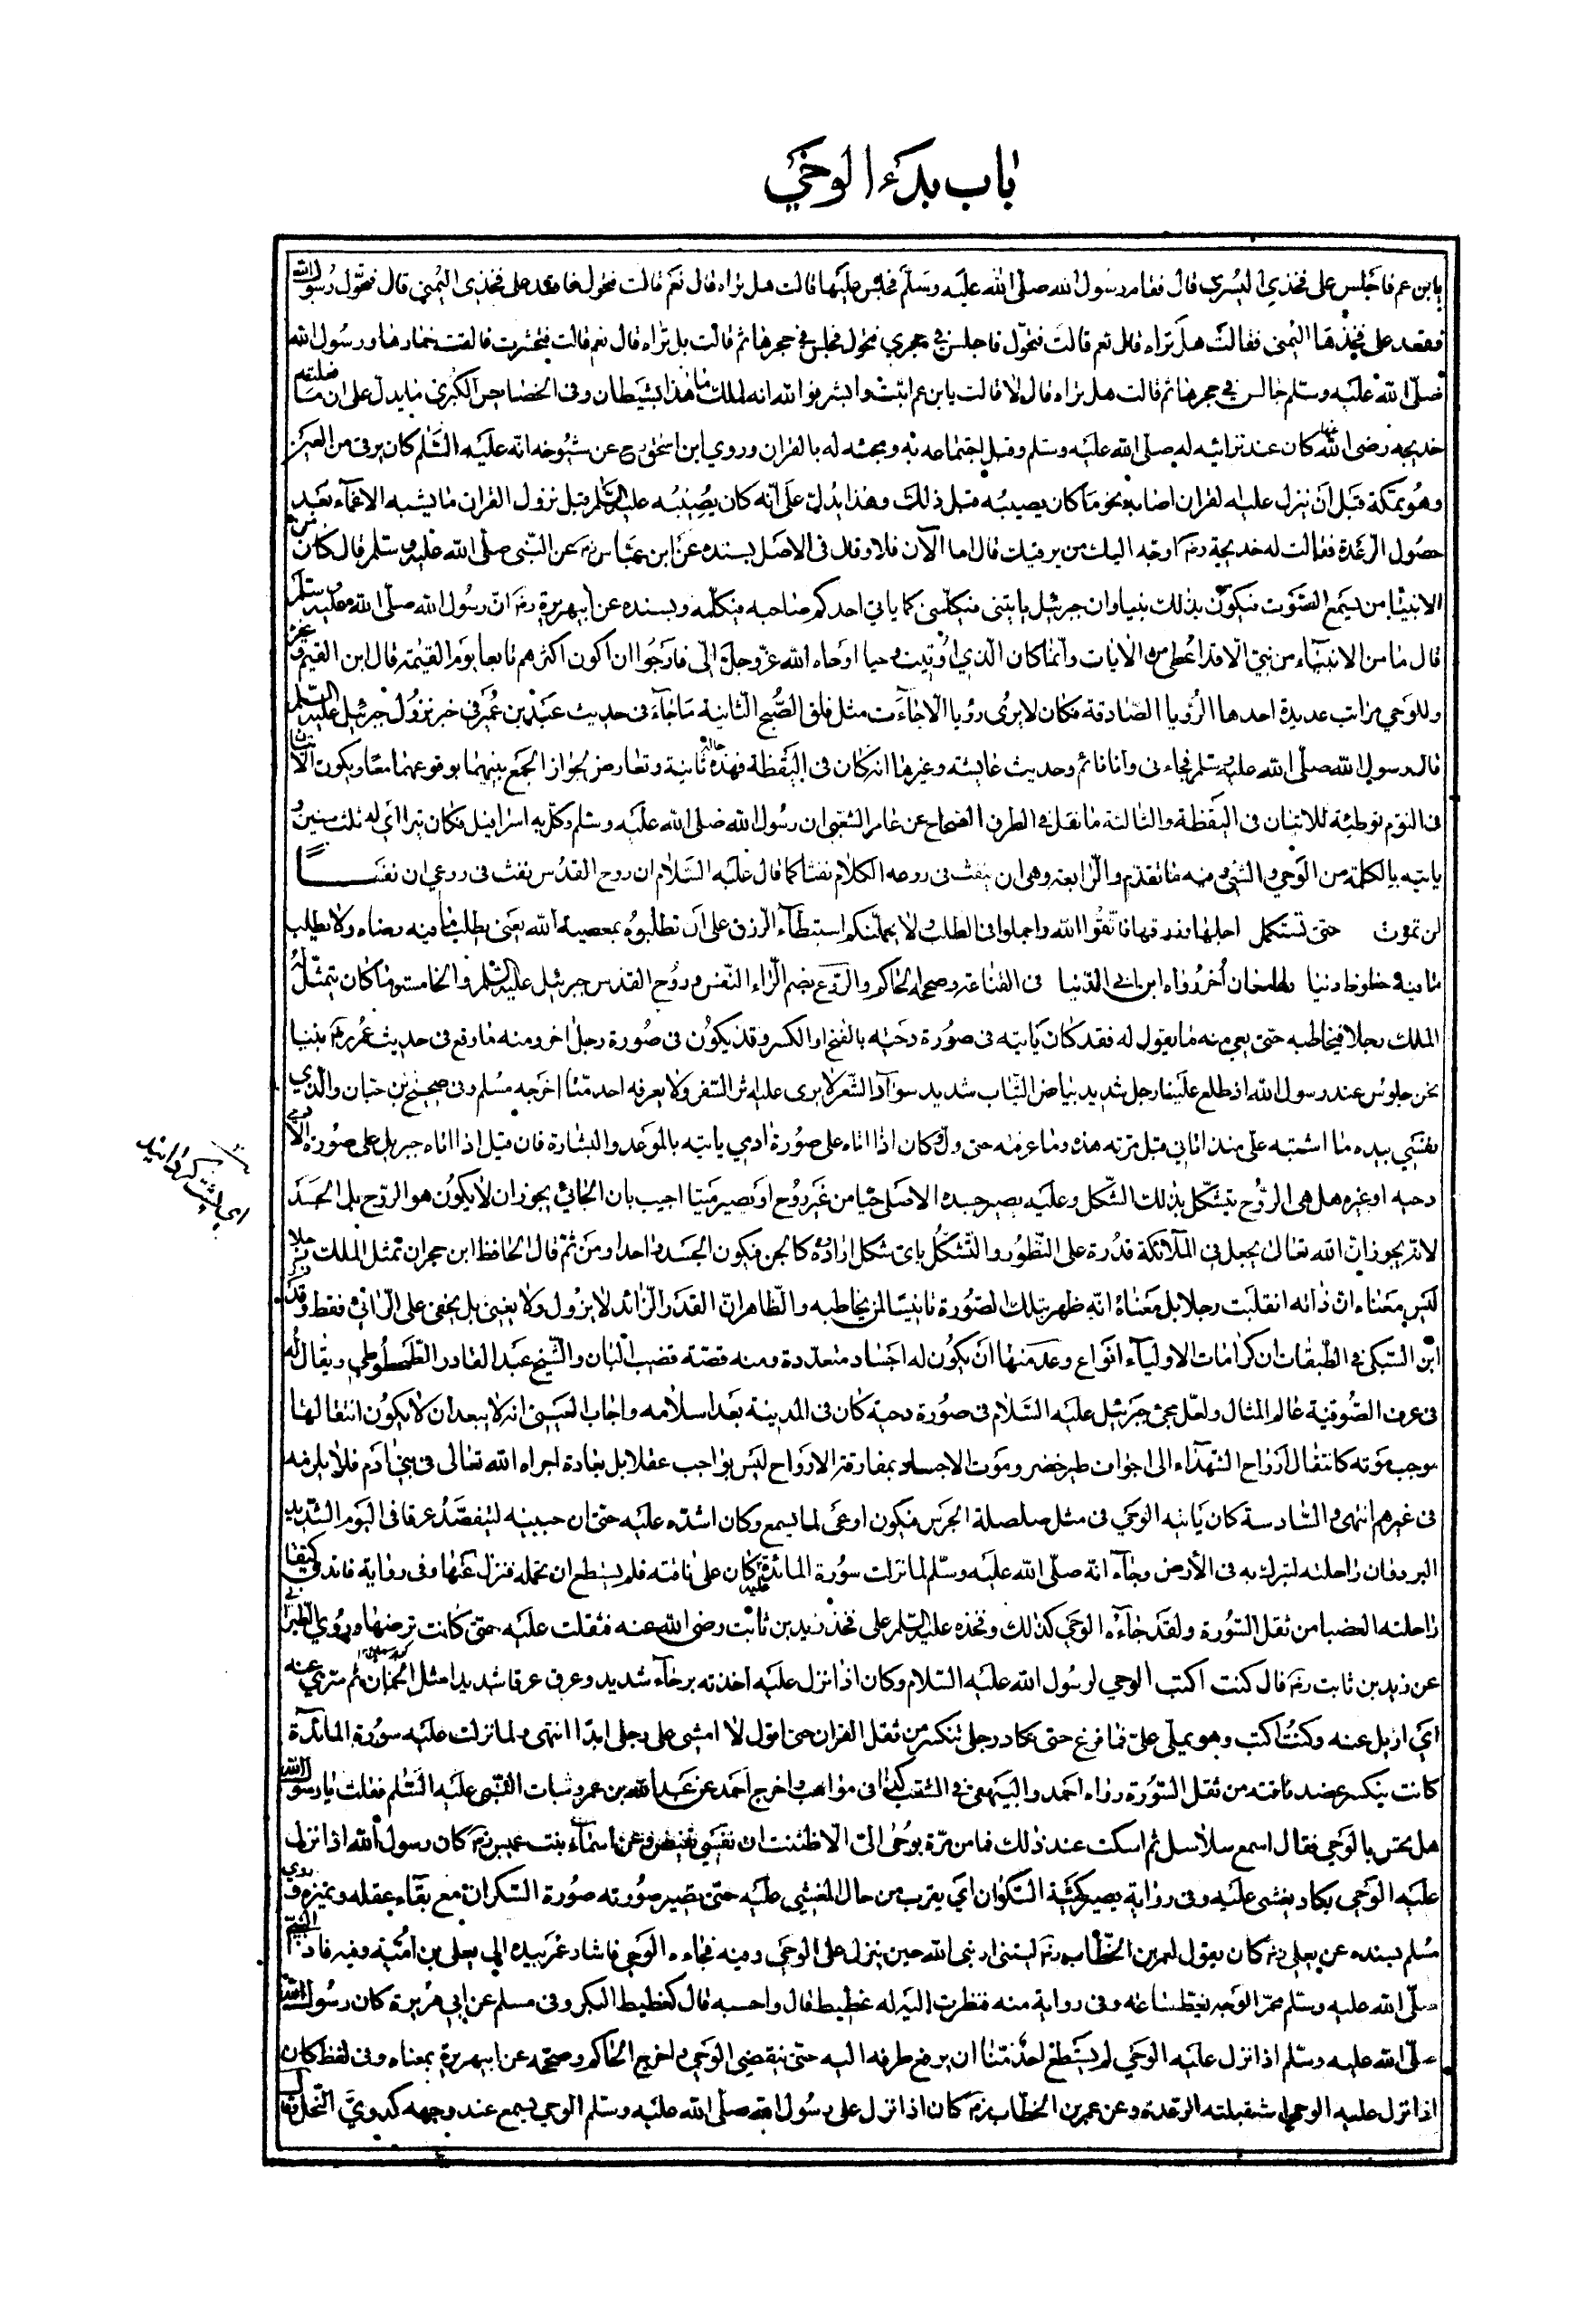 باب بدء الوحي
يا بن عم فاجلس على فخذي اليسرى قال فقام رسول الله صلى الله عليه وسلم فجلس عليها قالت هل تراه قال نعم قالت فتحول فاقعد على فخذي اليمنى قال فتحول رسول الله
فقعد على فخذها اليمنى فقالت هل تراه قال نعم قالت فتحول فاجلس في حجري فتحول فجلس في حجرها ثم قالت هل تراه قال نعم قالت فتحسرت فالقت خمارها ورسول الله
صلى الله عليه وسلم جالس في حجرها ثم قالت هل تراه قال لا قالت يا بن عم اثبت وابشر فوالله انه لملك ما هذا بشيطان وفي الخصايص الكبرى ما يدل على ان ما فعلته
خديجة رضى الله عنها كان عند ترائيه له صلى الله عليه وسلم وقبل اجتماعه به ومجيئه له بالقران وروي ابن اسحق عن شيوخه انه عليه السلم كان يرقى من العين
وهو بمكة قبل ان ينزل عليه القران اصابه نحو ما كان يصيبه قبل ذلك وهذا يدل على انه كان يصيبه عليه السلم قبل نزول القران ما يشبه الاغماء بعد
حصول الرعدة فقالت له خديجة رضي اوجه اليك من يرقيك قال اما الآن فلا وقال في الاصل بسنده عن ابن عباس رضي عن النبي صلى الله عليه وسلم قال كان من
الانبيآ من يسمع الصوت فيكون بذلك نبيا وان جبرئيل ياتيني فيكلمني كما ياتي احدكم صاحبه فيكلمه وبسنده عن ابي هريرة رضي ان رسول الله صلى الله عليه وسلم
قال ما من الانبياء من نبي الا قد اعطي من الايات وانما كان الذي اوتيت وحيا اوحاه الله عز وجل الي فارجوا ان اكون اكثرهم تابعا يوم القيمة قال ابن القيم وغيره
وللوحي مراتب عديدة احدها الرؤيا الصادقة فكان لا يرى رؤيا الا جاءت مثل فلق الصبح الثانية ما جاء في حديث عبيد بن عمير في خبر نزول جبرئيل عليه السلم
قال رسول الله صلى الله عليه وسلم فجاءني وانا نائم وحديث عايشة وغيرها انه كان في اليقظة فهذه حالة ثانية وتعارض لجواز الجمع بينهما بوقوعهما معا ويكون الاتيان
في النوم توطئة للاتيان في اليقظة والثالثة ما نقل في الطرق الصحاح عن عامر الشعبي ان رسول الله صلى الله عليه وسلم وكل به اسرافيل فكان يترااى له ثلث سنين و
ياتيه بالكلمة من الوحي والشئ ومنه ما تقدم والرابعة وهي ان ينفث في روعه الكلام نفثا كما قال عليه السلام ان روح القدس نفث في روعي ان نفسا
لن تموت حتى تستكمل اجلها ورزقها فاتقوا الله واجملوا في الطلب ولا يحملنكم استبطاء الرزق على ان تطلبوه بمعصية الله يعني يطلب ما فيه رضاه ولا يطلب
ما فيه حظوظ دنيا اخر رواه ابن ابي الدنيا في القناعة وصححه الحاكم والروع بضم الراء النفس وروح القدس جبرئيل عليه السلم والخامسة ما كان يتمثل له
الملك رجلا فيخاطبه حتى يعي منه ما يقول له فقد كان ياتيه في صورة دحية بالفتح او الكسر وقد يكون في صورة رجل اخر ومنه ما وقع في حديث عمر رضي بينا
نحن جلوس عند رسول الله اذ طلع علينا رجل شديد بياض الثياب شديد سواد الشعر لا يرى عليه اثر السفر ولا يعرفه احد منا اخرجه مسلم وفي صحيح بن حبان والذي
نفسي بيده ما اشتبه علي منذ اتاني قبل مرته هذه وما عرفته حتى ولى وكان اذا اتاه على صورة ادمي ياتيه بالوعد والبشارة فان قيل اذا اتاه جبريل على صورة الآدمي
دحيه او غيره هل هي الروح تتشكل بذلك الشكل وعليه يصير جسده الاصلي حيا من غير روح او يصير ميتا اجيب بان الجائي يجوز ان لا يكون هو الروح بل الجسد
لانه يجوز ان الله تعالى يجعل في الملآئكة قدرة على التطور والتشكل باي شكل ارادوه كالجن فيكون الجسد واحدا ومن ثم قال الحافظ ابن حجر ان تمثل الملك رجلا
ليس معناه ان ذاته انقلبت رجلا بل معناه انه ظهر بتلك الصورة تانيسا لمن يخاطبه والظاهر ان القدر الزائد لا يزول ولا يفنى بل يخفى على الرائي فقط وقد ذكر
ابن السبكي في الطبقات ان كرامات الاولياء انواع وعد منها ان يكون له اجساد متعددة ومنه قصة قضيب البان والشيخ عبد القادر الطحطوطي ويقال له
في عرف الصوفية عالم المثال ولعل مجئ جبرئيل عليه السلام في صورة دحية كان في المدينة بعد اسلامه واجاب العيني انه لا يبعد ان لا يكون انتقالها
موجب موته كانتقال ارواح الشهداء الى اجواف طير خضر وموت الاجساد بمفارقة الارواح ليس بواجب عقلا بل بعادة اجراه الله تعالى في بني ادم فلا يلزمه
في غيرهم انتهى والسادسة كان ياتيه الوحي في مثل صلصلة الجرس فيكون اوعى لما يسمع وكان اشده عليه حتى ان جبينه ليتفصد عرقا في اليوم الشديد
البرد وان راحلته لتبرك به في الأرض وجآء انه صلى الله عليه وسلم لما نزلت سورة المائدة عليه كان على ناقته فلم يستطع ان تحمله فنزل عنها وفي رواية فاندق كتف
راحلته العضبا من ثقل السورة ولقد جاءه الوحي كذلك وفخذه عليه السلم على فخذ زيد بن ثابت رضى الله عنه فثقلت عليه حتى كانت ترضها وروي الطبراني
عن زيد بن ثابت رضي قال كنت اكتب الوحي لرسول الله عليه السلام وكان اذا نزل عليه اخذته برحاء شديد وعرق عرقا شديدا مثل الجمان ثم سري عنه
اي ازيل عنه وكنت اكتب وهو يملي علي فما فرغ حتى تكاد رجلي تنكسر من ثقل القران حتى اقول لا امشي على رجلي ابدا انتهى ولما نزلت عليه سورة المائدة
كادت ينكسر عضد ناقته من ثقل السورة رواه احمد والبيهقي في الشعب كذا في مواهب واخرج احمد عن عبد الله بن عمر النبي عليه السلم فقلت يا رسول الله
هل تحس بالوحي فقال اسمع سلاسل ثم اسكت عند ذلك فما من مرة يوحى الي الا ظننت ان نفسي تقبض وعن اسماء بنت عميس رضي كان رسول الله اذا نزل
عليه الوحي يكاد يغشى عليه وفي رواية يصير كهيئة السكران اي يقرب من حال المغشي عليه حتى يتغير صورته صورة السكران مع بقاء عقله وتميزه وروي
مسلم بسنده عن يعلى رضي كان يقول لعمر بن الخطاب رضي ليتني ارى نبي الله حين ينزل على الوحي ومنه فجاءه الوحي فاشار عمر بيده الى يعلى بن امية وفيه فاذا النبي
صلى الله عليه وسلم محمر الوجه يغط ساعة وفي رواية منه فنظرت اليه له غطيط قال واحسبه قال كغطيط البكر وفي مسلم عن ابي هريرة كان رسول الله
صلى الله عليه وسلم اذا نزل عليه الوحي لم يستطع احد منا ان يرفع طرفه اليه حتى ينقضي الوحي واخرج الحاكم وصححه عن ابي هريرة بمعناه وفي لفظ كان
اذا نزل عليه الوحي استقبلته الرعدة وعن عمر بن الخطاب رضي كان اذا نزل على رسول الله صلى الله عليه وسلم الوحي يسمع عند وجهه كدوي النحل